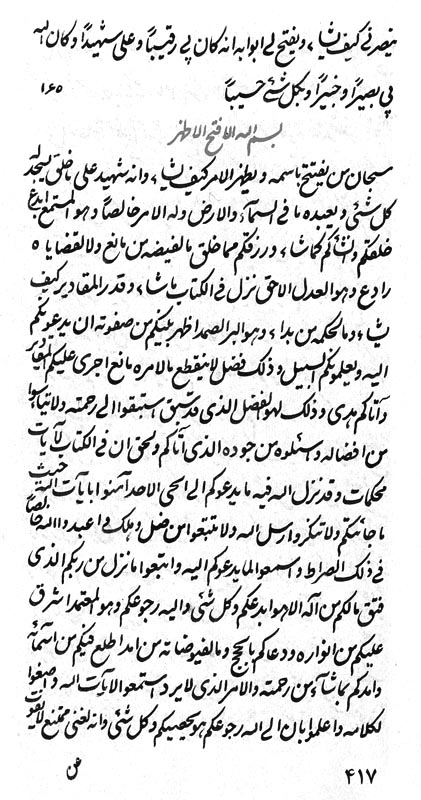 ینصرنی کیف یشاء ویفتح لی ابوابه انه کان بی رقیباً وعلی شهیداً وکان الله
بی بصیراً وخبیراً وبکل شئ حسیباً ١٦٥
بسم الله الافتح الاطهر
سبحان من یفتتح باسمه ویظهر الامر کیف یشاء وانه شهید علی ماخلق یسجد له
کل شئ ویعبده ما فی السمآء والارض وله الامر خالصاً وهو المستمع ابدع
خلقکم وانشأکم کما شاء ورزقکم مما خلق مالفیضه من مانع ولا لقضایاه
رادع وهو العدل الاحق نزل فی الکتاب ماشاء وقدر المقادیر کیف
یشاء ومالحکمه من بداء وهو البر الصمد اظهر بینکم من صفوته ان یدعونکم
الیه ویعلمونکم السبیل وذلک فضل لاینقطع مالامره مانع اجری علیکم المقادیر
وآتاکم هدی وذلک لهو الفضل الذی قد سبق استبقوا الی رحمته ولا تیأسوا
من افضاله واسئلوه من جوده الذی آتاکم ولحق ان فی الکتاب لآیات
محکمات وقد نزل الله فیه ما یدعوکم الی الحی الاحد آمنوا بآیات الله حیث
ما جائتکم ولا تنکروا رسل الله ولا تتبعوا من ضل وهلک واعبدوا الله خالصاً
فی ذلک الصراط واسمعوا لما یدعوکم الیه واتبعوا ما نزل من ربکم الذی
فتق مالکم من آله الا هو ابدعکم وکل شئ والیه رجوعکم وهو المعتمد اشرق
علیکم من انواره ودعاکم بالحجج وما لفیوضاته من امد اطلع فیکم من اسمآئه
وامدکم بما شاء من رحمته والامر الذی لایرد استمعوا لآیات الله واصغوا
لکلامه واعلموا بان الی الله رجوعکم هو یحصیکم وکل شئ وانه لغنی ممتنع لایفوت
٤١٧